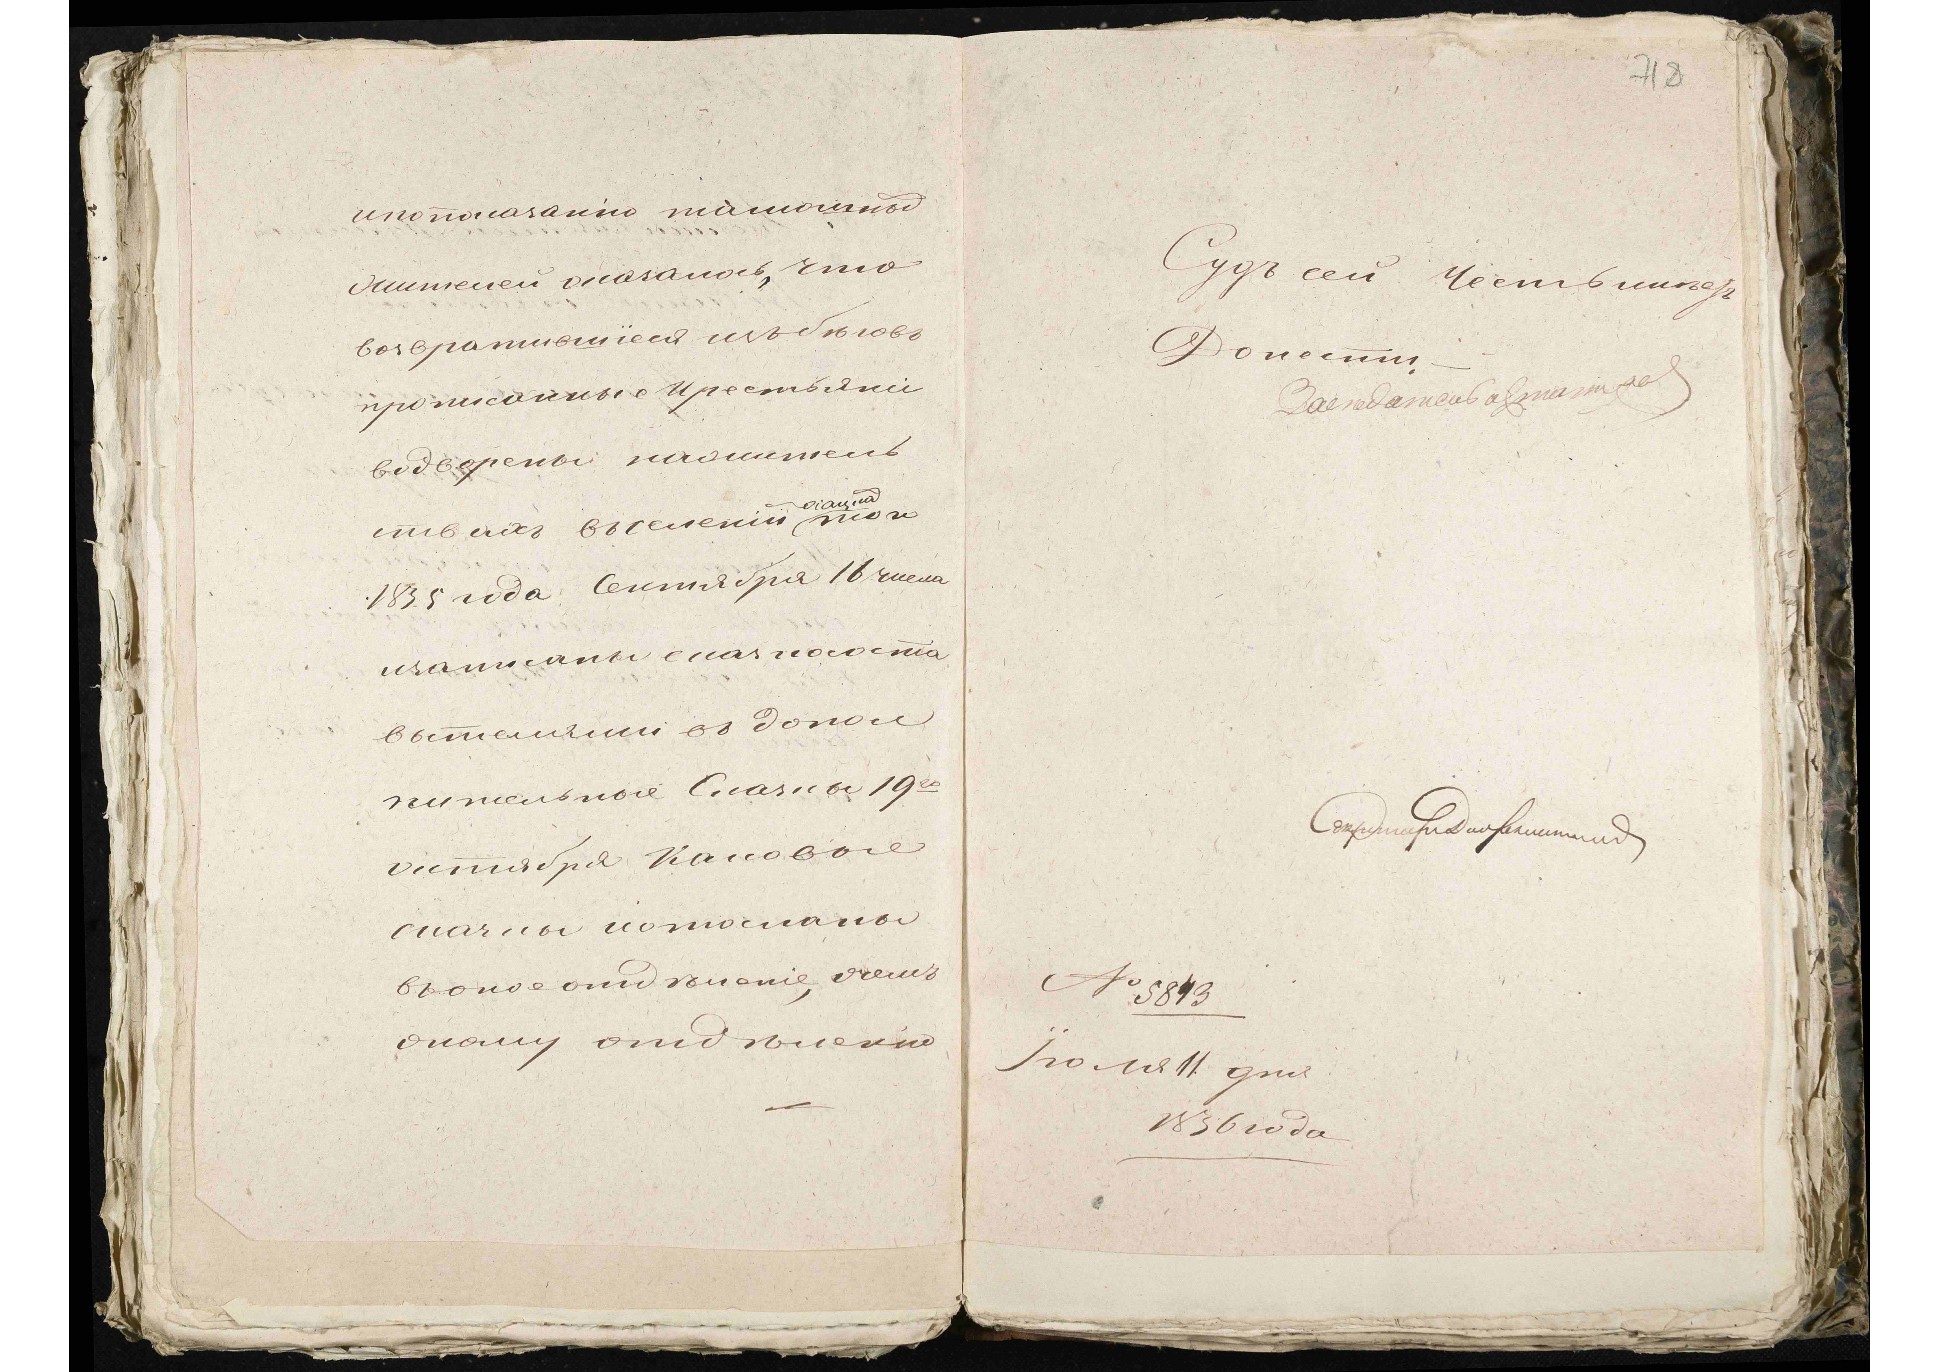 ипопоказанію тамошныхъ
жителей оказалось, что
возвратившіеся изъ бѣговъ
прописанные Крестьяни
водворены нажитель
ствахъ вселеніи
1835 года Сентября 16 числа
изаписаны
въ допол
нительные Сказки 19го
октября Каковые
сказки иотосланы
въоное отдѣленіе, очемъ
оному отдѣленію
718
Судъ сей Честьимѣетъ
Донести.
Засѣдатель
Секретарь
№ 5843
Іюля 11 дня
1836 года